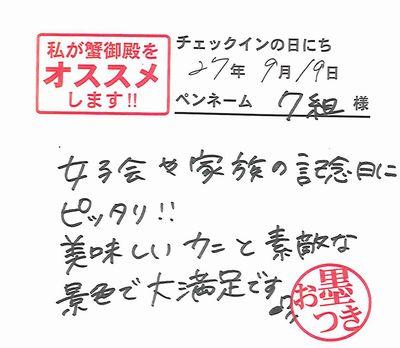 私が蟹御殿を
オススメ
します!!
チェックインの日にち
27年 9月19日
ペンネーム 7組 様
女子会や家族の記念日に
ピッタリ!!
美味しいカニと素敵な
景色で大満足です♪
お墨つき